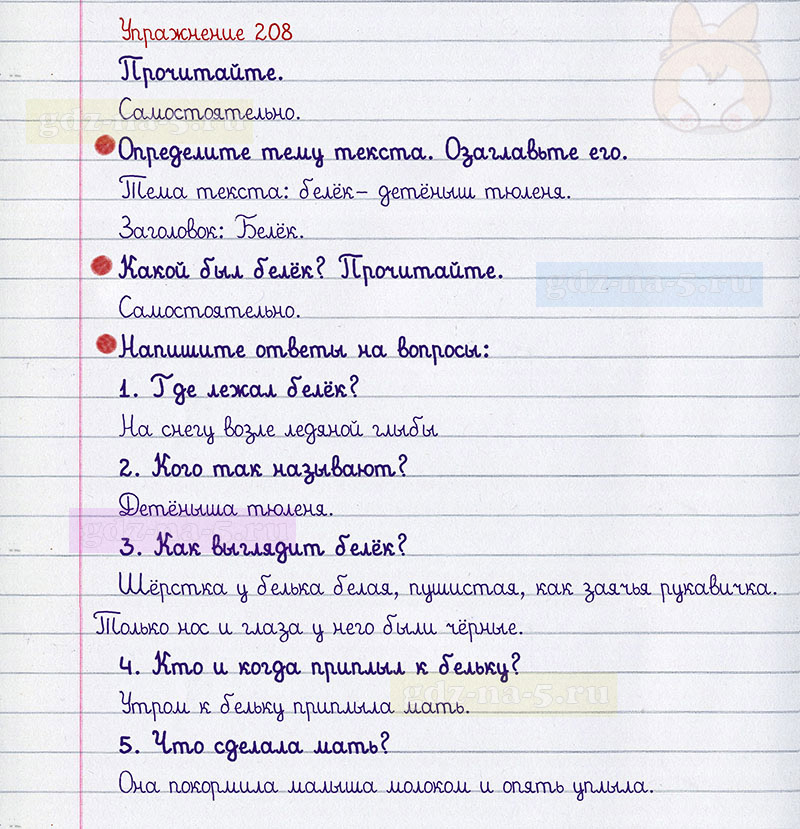 Упражнение 208
Прочитайте.
Самостоятельно.
gdz-na-5.ru
Определите тему текста. Озаглавьте его.
Тема текста: белёк– детёныш тюленя.
Заголовок: Белёк.
Какой был белёк? Прочитайте.
gdz-na-5.ru
Самостоятельно.
Напишите ответы на вопросы:
1. Где лежал белёк?
На снегу возле ледяной глыбы
2. Кого так называют?
Детёныша тюленя.
gdz-na-5.ru
3. Как выглядит белёк?
Шёрстка у белька белая, пушистая, как заячья рукавичка.
Только нос и глаза у него были чёрные.
4. Кто и когда приплыл к бельку?
gdz-na-5.ru
Утром к бельку приплыла мать.
5. Что сделала мать?
Она покормила малыша молоком и опять уплыла.